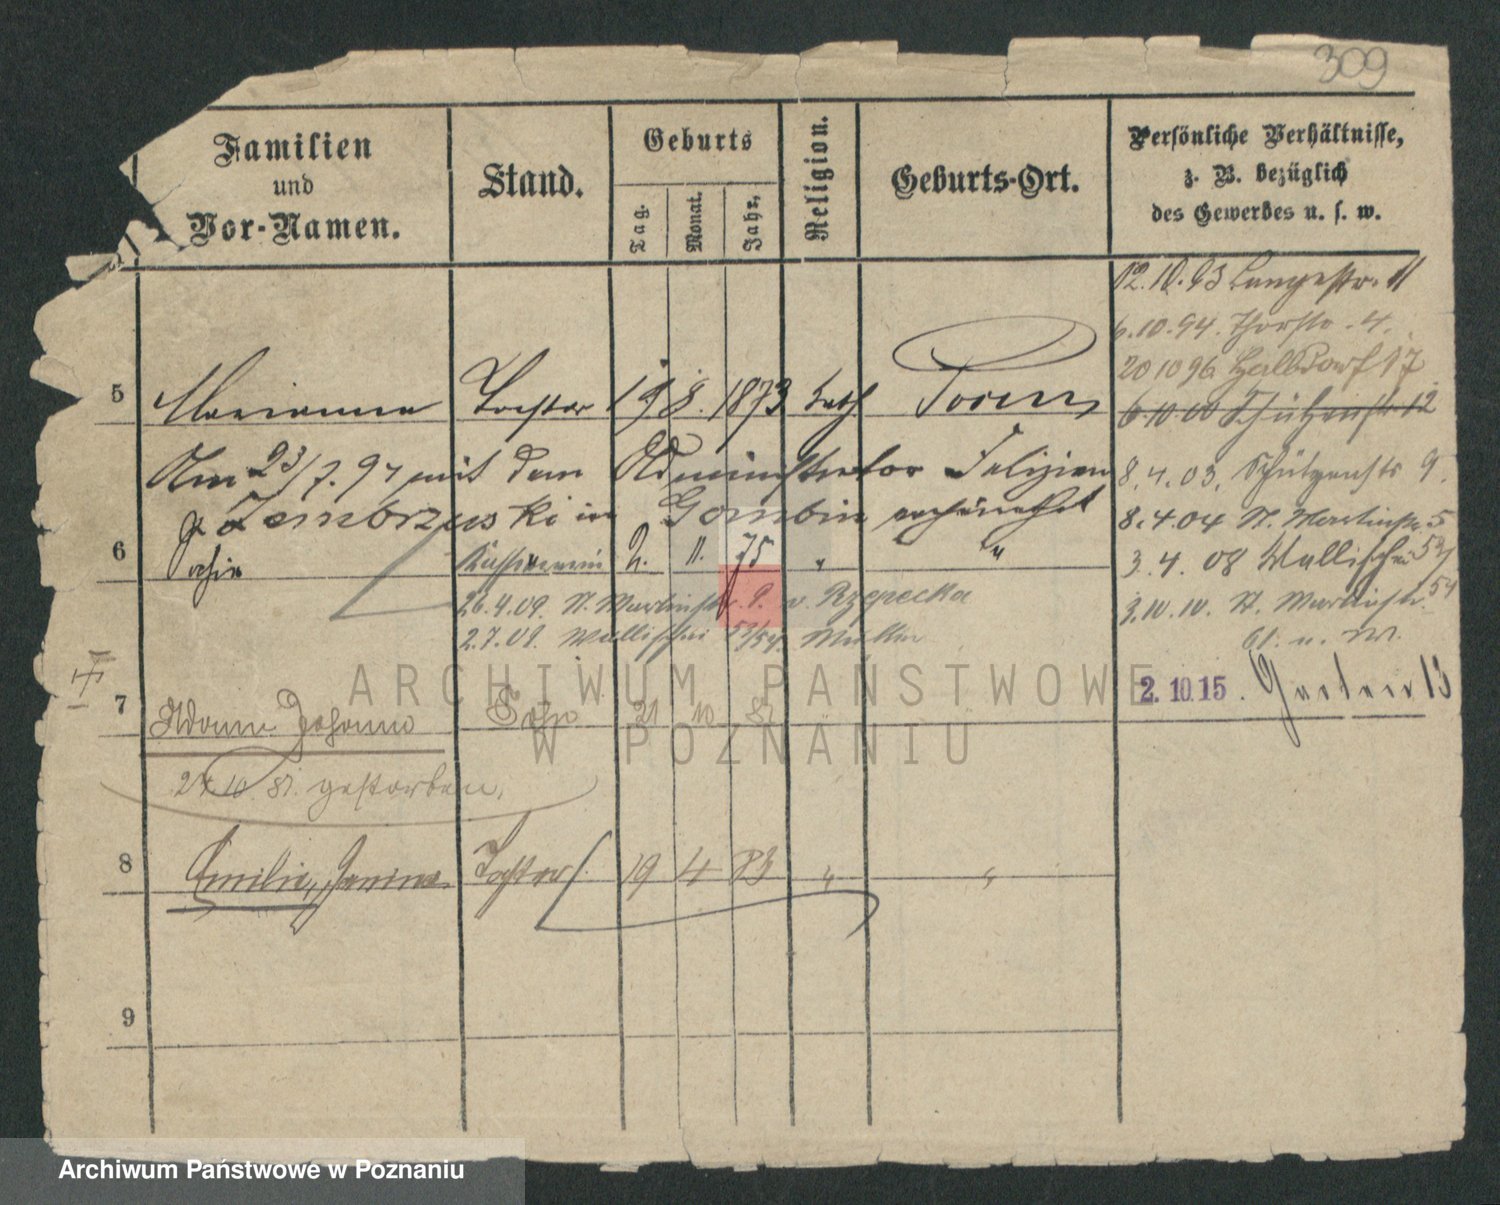 309
Familien
und
Vor-Namen.
Stand.
Geburts
Tag.
Monat.
Jahr.
Religion.
Geburts-Ort.
Persönliche Verhältnisse,
z. B. bezüglich
des Gewerbes u. s. w.
12.10.93 Langestr. 11
6.10.94. Thorstr. 4.
20 10 96 Halbdorf 17
5 Marianna Tochter 19 8. 1873 kath Posen
6 10 00 Schützenstr. 12
Am 23/7.97 mit dem Administrator Felizian
8.4.03. Schützenstr 9.
Dembrzuski in Gombin
8.4.04 St. Martinstr. 5
6 Sophia 2. 11. 75 " "
3.4.08 Wallischei 53/
26.4.09. St. Martinstr. 9. v. Rzepecka
3.10.10. St. Martinstr. 54
2.7.09. Wallischei 53/54
b/. u. M.
7 Adam Johann Sohn 21 10 81
2.10.15. Garten 13
24.10.81. gestorben.
8 Emilie, Janina Tochter 19 4 83 " "
9
ARCHIWUM PAŃSTWOWE
W POZNANIU
Archiwum Państwowe w Poznaniu